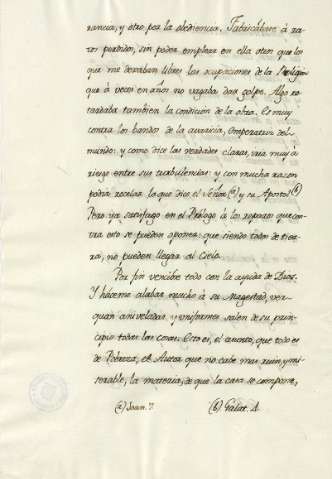 rancia, y otro por la obediencia. Fabricábase á ra-
tos perdidos, sin poder emplear en ella otros que los
que me dexaban libres las ocupaciones de la Religion
que á veces en años no vagaba dar golpe. Algo re-
tardaba tambien la condicion de la obra. Es muy
contra los bandos de la avaricia, Imperatriz del
mundo: y como dice las verdades claras, iria muy á
riesgo entre sus turbulencias: y con mucha razon
podia recelar lo que dixo el Señor (a) y su Apostol (b)
Pero ya satisfago en el Prólogo á los reparos que con-
tra esto se pueden oponer: que siendo todos de tier-
ra, no pueden llegar al Cielo.
Por fin vencióse todo con la ayuda de Dios.
Y háceme alabar mucho á su Magestad, ver
quan aniveladas y uniformes salen de su prin-
cipio todas las cosas. Esto es, el asunto, que todo es
de Pobreza, el Autor que no cabe mas ruin, y mi-
serable, la materia, de que la casa se compone,
(a) Joan. 7 (b) Galat. 4